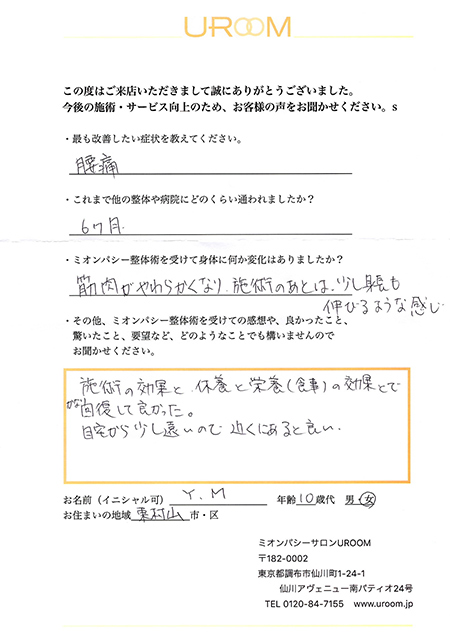 UROOM
この度はご来店いただきまして誠にありがとうございました。
今後の施術・サービス向上のため、お客様の声をお聞かせください。s
・最も改善したい症状を教えてください。
腰痛
・これまで他の整体や病院にどのくらい通われましたか？
6ヶ月
・ミオンパシー整体術を受けて身体に何か変化はありましたか？
筋肉がやわらかくなり、施術のあとは、少し身長も
伸びるような感じ
・その他、ミオンパシー整体術を受けての感想や、良かったこと、
驚いたこと、要望など、どのようなことでも構いませんので
お聞かせください。
施術の効果と、休養と栄養(食事)の効果とで
かな回復して良かった。
自宅から少し遠いので近くにあると良い.
お名前（イニシャル可） Y.M 年齢10歳代 男・女
お住まいの地域 東村山 市・区
ミオンパシーサロンUROOM
〒182-0002
東京都調布市仙川町1-24-1
仙川アヴェニュー南パティオ24号
TEL 0120-84-7155 www.uroom.jp